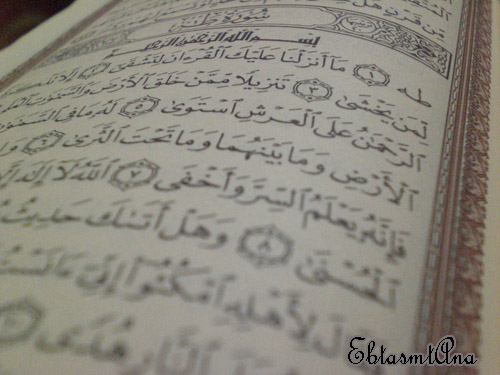 مِّن قَرْنٍ هَلْ
سُورَةُ طه
بِسْمِ اللَّهِ الرَّحْمَٰنِ الرَّحِيمِ
طه ١ مَا أَنزَلْنَا عَلَيْكَ الْقُرْءَانَ لِتَشْقَىٰ ٢ إِلَّا
لِّمَن يَخْشَىٰ ٣ تَنزِيلًا مِّمَّنْ خَلَقَ الْأَرْضَ وَالسَّمَٰوَٰتِ
الرَّحْمَٰنُ عَلَى الْعَرْشِ اسْتَوَىٰ ٥ لَهُ مَا فِي السَّمَٰوَٰتِ
الْأَرْضِ وَمَا بَيْنَهُمَا وَمَا تَحْتَ الثَّرَىٰ ٦
فَإِنَّهُ يَعْلَمُ السِّرَّ وَأَخْفَى ٧ اللَّهُ لَا إِلَٰهَ
الْحُسْنَىٰ ٨ وَهَلْ أَتَىٰكَ حَدِيثُ
لِأَهْلِهِ امْكُثُوا إِنِّي ءَانَسْتُ
النَّارِ هُدًى
EbtasmtAna